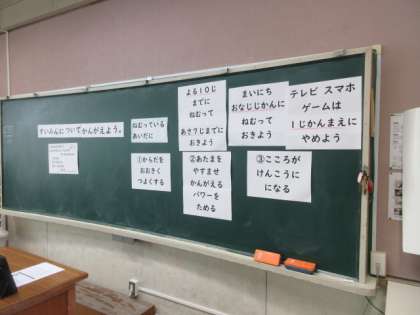 すいみんについてかんがえよう。
ねむっている
あいだに
よる10じ
までに
ねむって
あさ7じまでに
おきよう
まいにち
おなじじかんに
ねむって
おきよう
テレビ スマホ
ゲームは
1じかんまえに
やめよう
①からだを
おおきく
つよくする
②あたまを
やすませ
かんがえる
パワーを
ためる
③こころが
けんこうに
になる